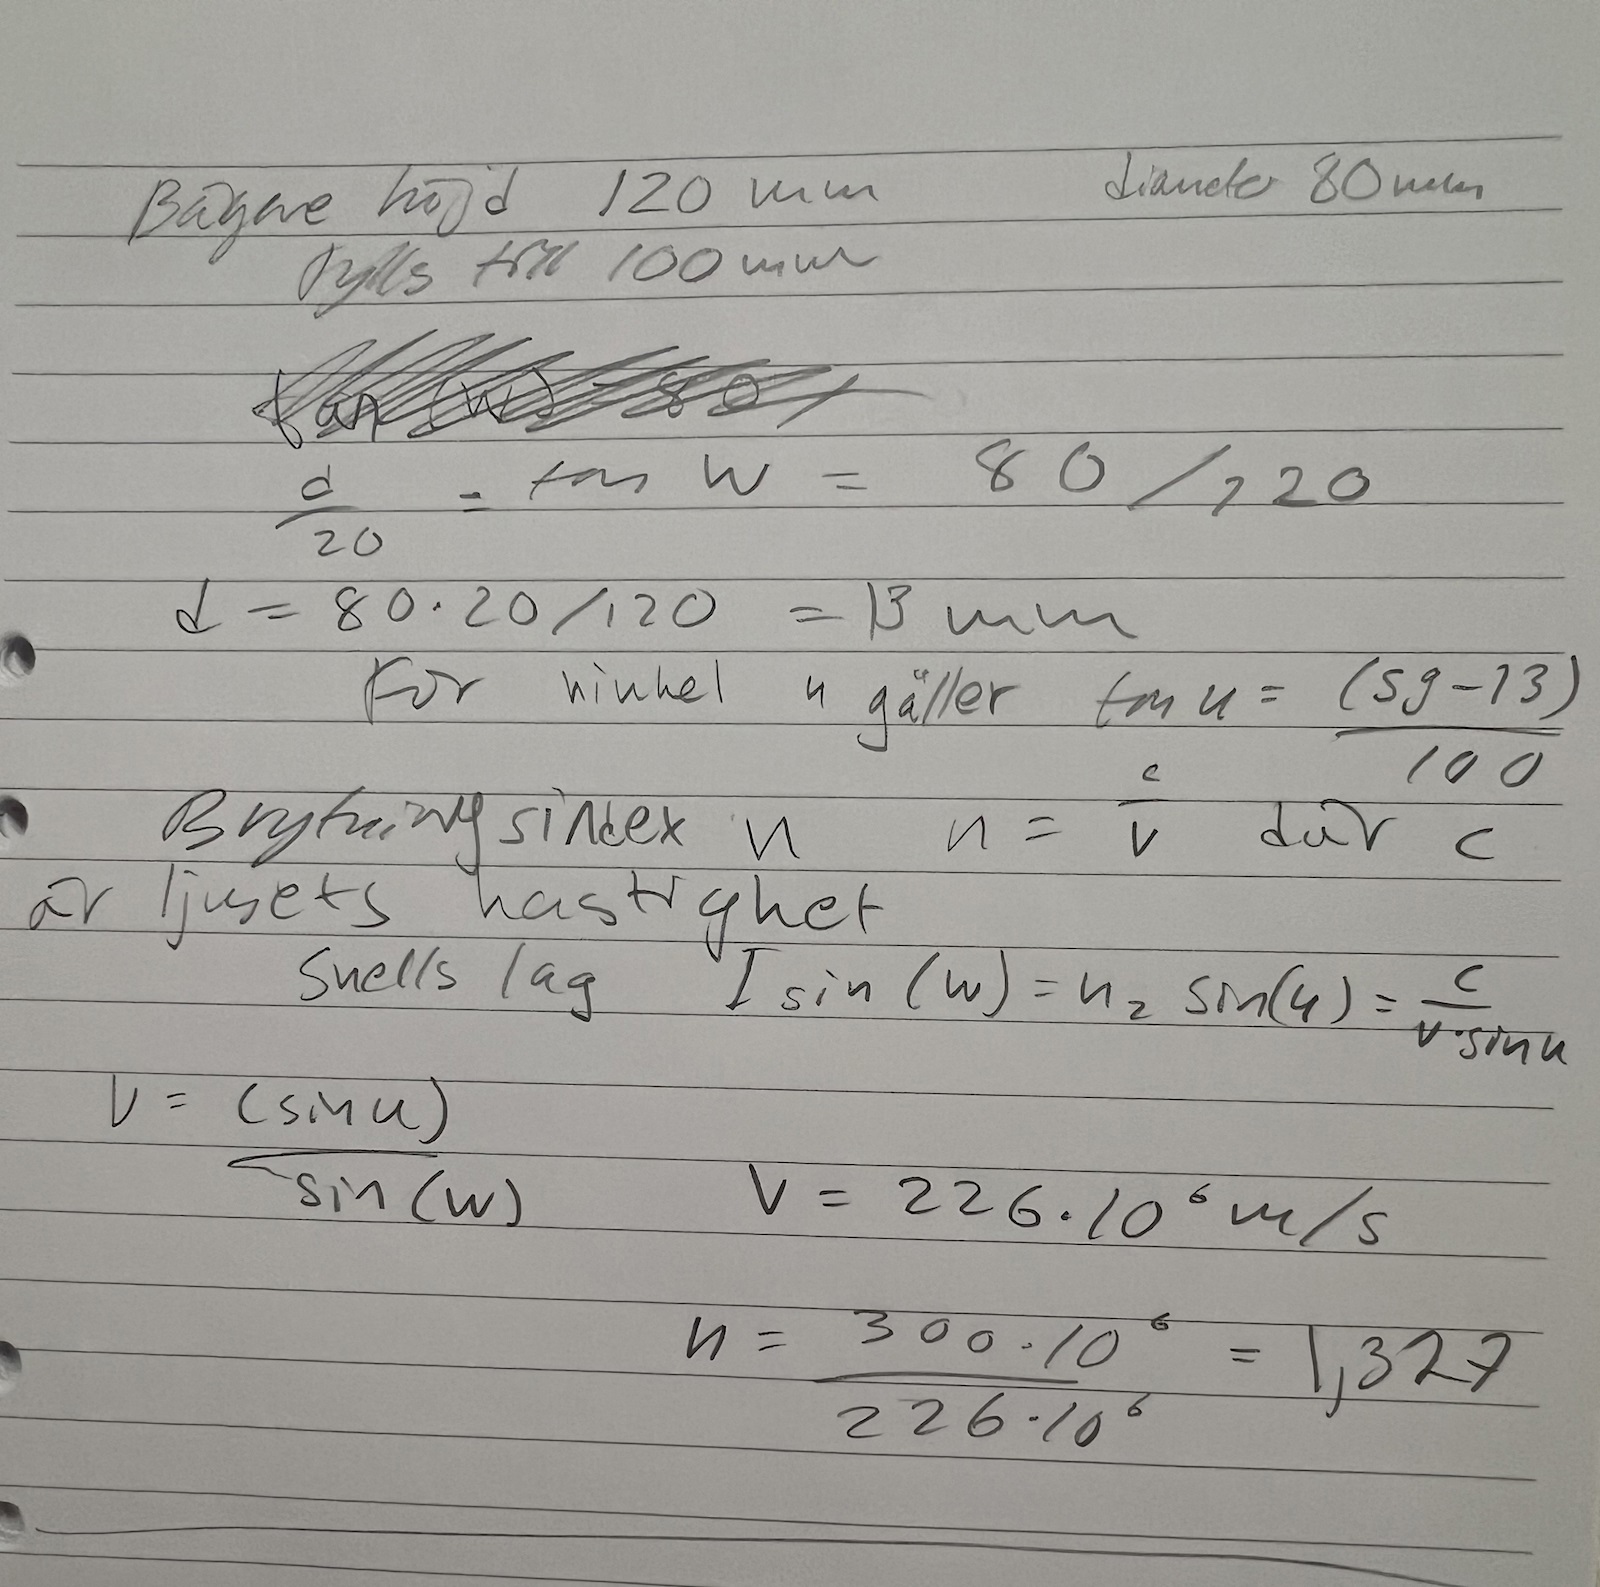 Bägare höjd 120 mm diameter 80 mm
Fylls till 100 mm
d/20 = tan w = 80/120
d = 80·20/120 = 13 mm
För vinkel u gäller tan u = (59-13)/100
Brytningsindex n n = c/v där c
är ljusets hastighet
Snells lag 1 sin(w) = n₂ sin(u) = c/v·sin u
V = (sin u)/sin(w) V = 226·10⁶ m/s
n = 300·10⁶/226·10⁶ = 1,327